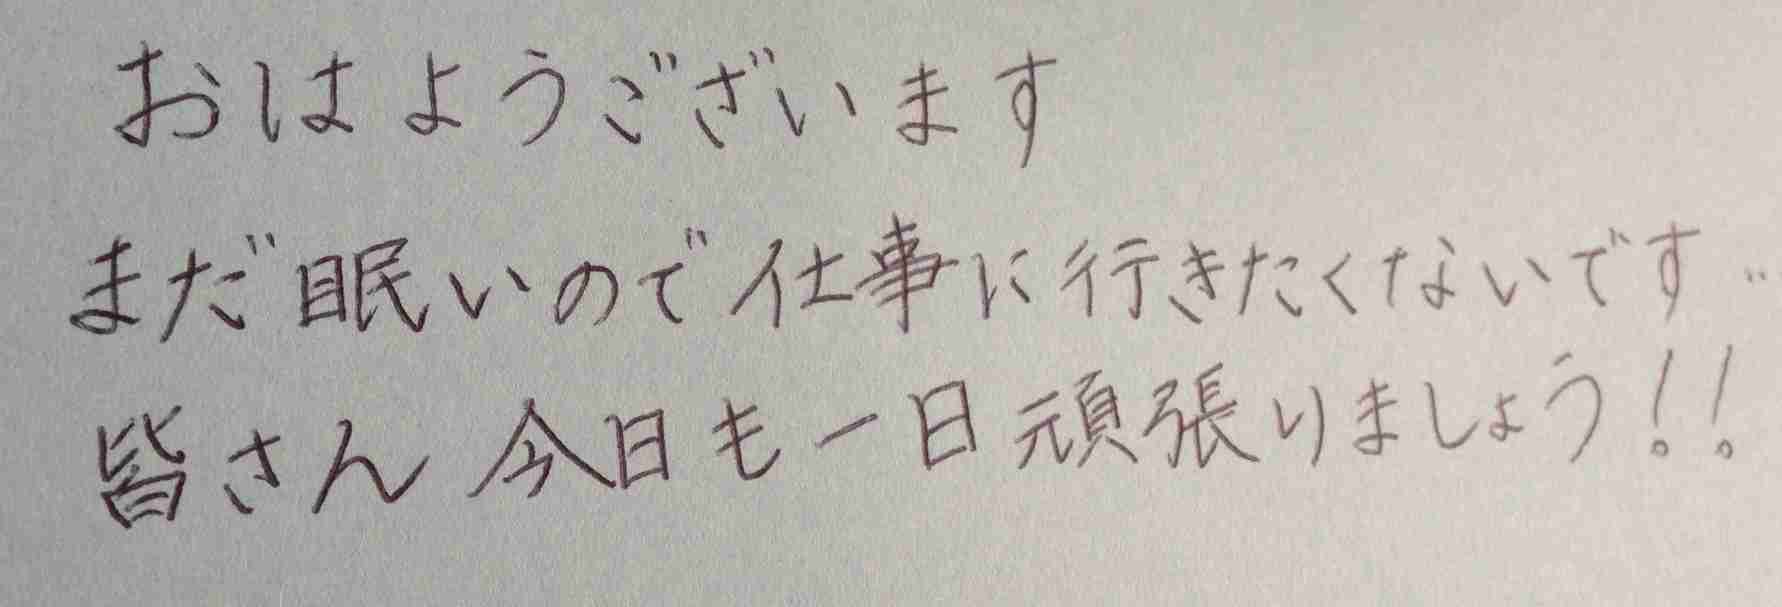 おはようございます
まだ眠いので仕事に行きたくないです..
皆さん今日も一日頑張りましょう!!